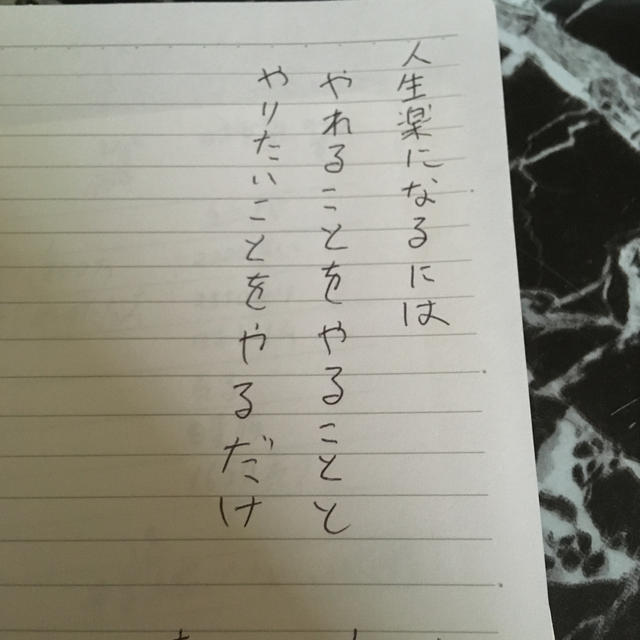 人生楽になるには
やれることをやることと
やりたいことをやるだけ